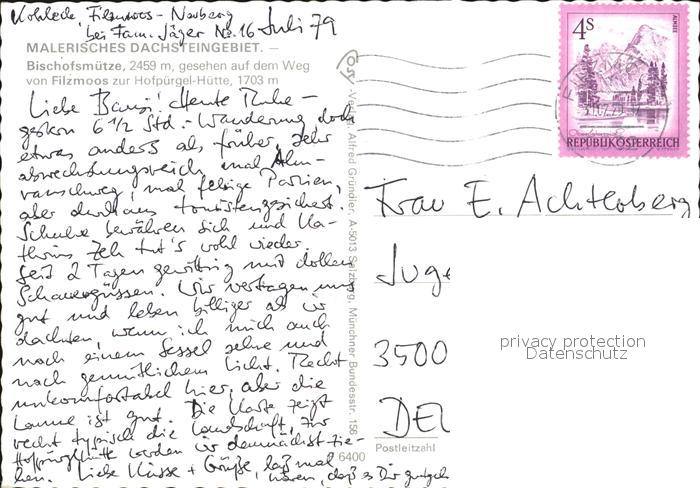 Kohleck, Filzmoos - Neuberg
bei Fam. Jäger Nr. 16 Juli 79
MALERISCHES DACHSTEINGEBIET. —
Bischofsmütze, 2459 m, gesehen auf dem Weg
von Filzmoos zur Hofpürgel-Hütte, 1703 m
Liebe ! Heute Ruhe –
gestern 6 1/2 Std.-Wanderung, doch
etwas anders als früher, sehr
abwechslungsreich, mal Alm-
, mal felsige Partien,
aber durchaus touristengesichert.
Schuhe bewähren sich und Ka-
thrins Zeh tut's wohl wieder.
Seit 2 Tagen gewittrig mit dollen
Schauergüssen. Wir vertragen uns
gut und leben billiger als wir
dachten, wenn ich mich auch
nach einem Sessel sehne und
nach gemütlichem Licht. Recht
unkomfortabel hier, aber die
Laune ist gut. Die Karte zeigt
recht typisch die Landschaft, zur
Hofpürglhütte werden wir demnächst zie-
hen. Liebe Küsse + Grüße, laß mal
hören, daß es Dir gutgeht
Verlag Alfred Gründler, A-5013 Salzburg, Münchner Bundesstr. 156
6400
4S
ALMSEE
REPUBLIK ÖSTERREICH
Frau E. Achterberg
Juge
3500
DEU
Postleitzahl
privacy protection
Datenschutz